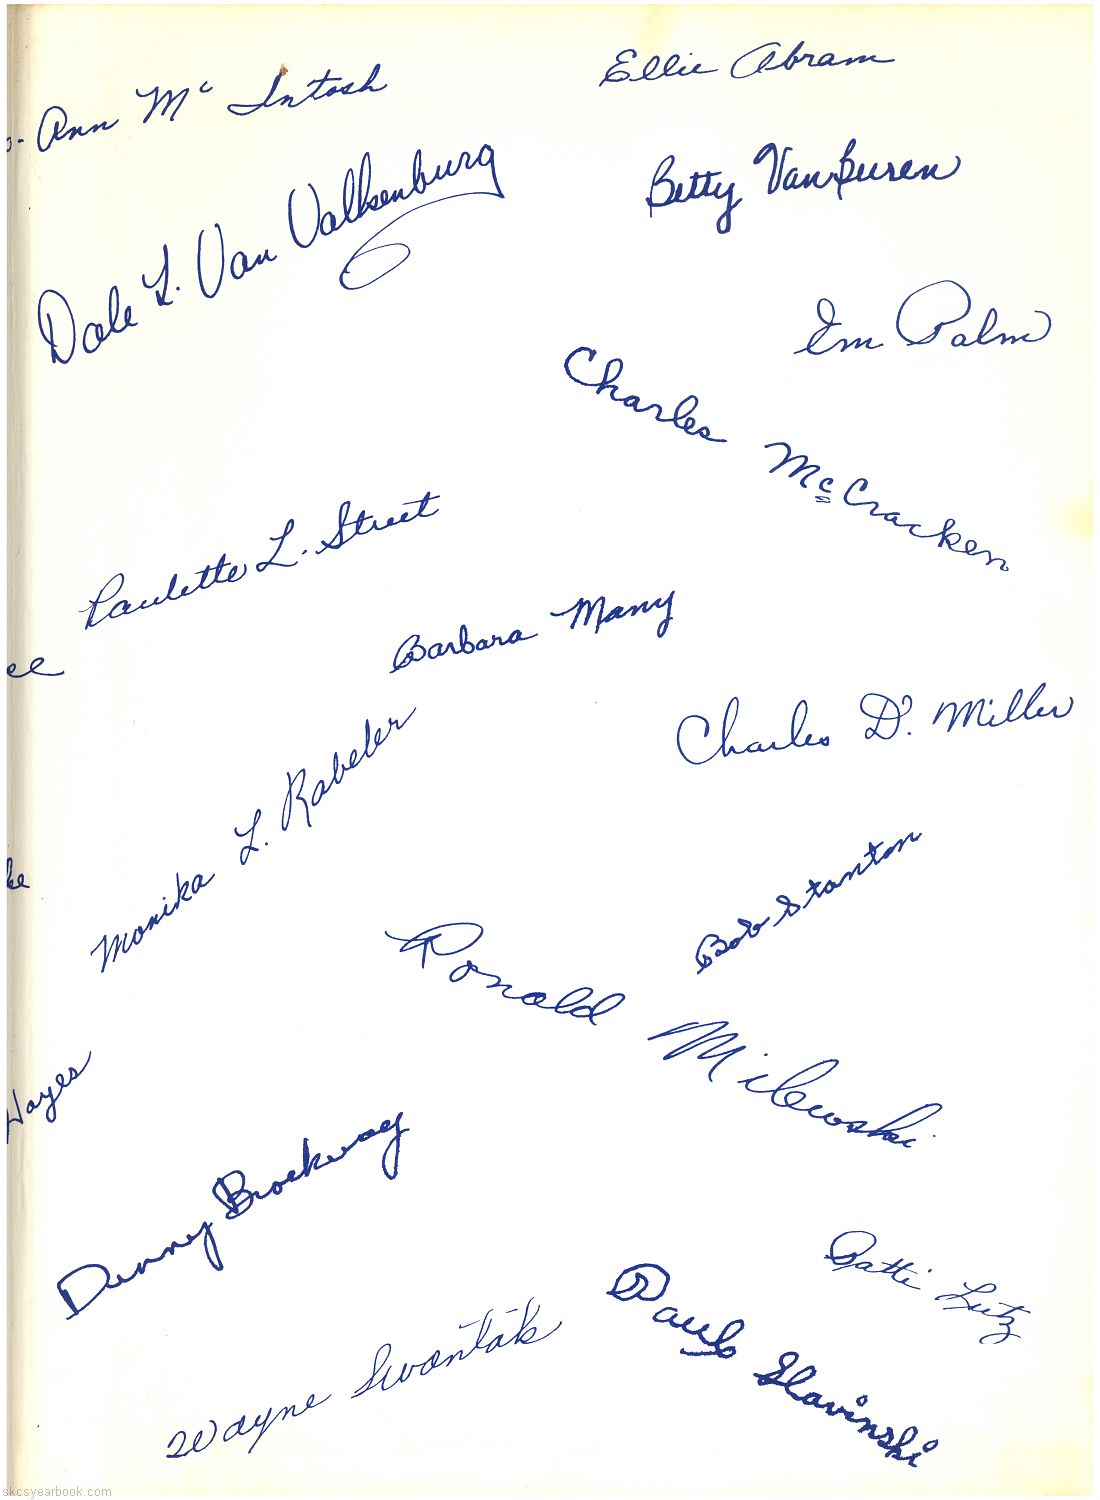 Ann Mc Intosh
Ellie Abram
Dale L. Van Valkenburg
Betty VanBuren
Im Palm
Charles McCracken
Paulette L. Street
Barbara Many
ee
Charles D. Miller
Monika L. Rabeler
Bob Stanton
ke
Ronald Milewski
Hayes
Denny Brockway
Patti Lutz
Paul Slavinski
Wayne Swontek
skcsyearbook.com